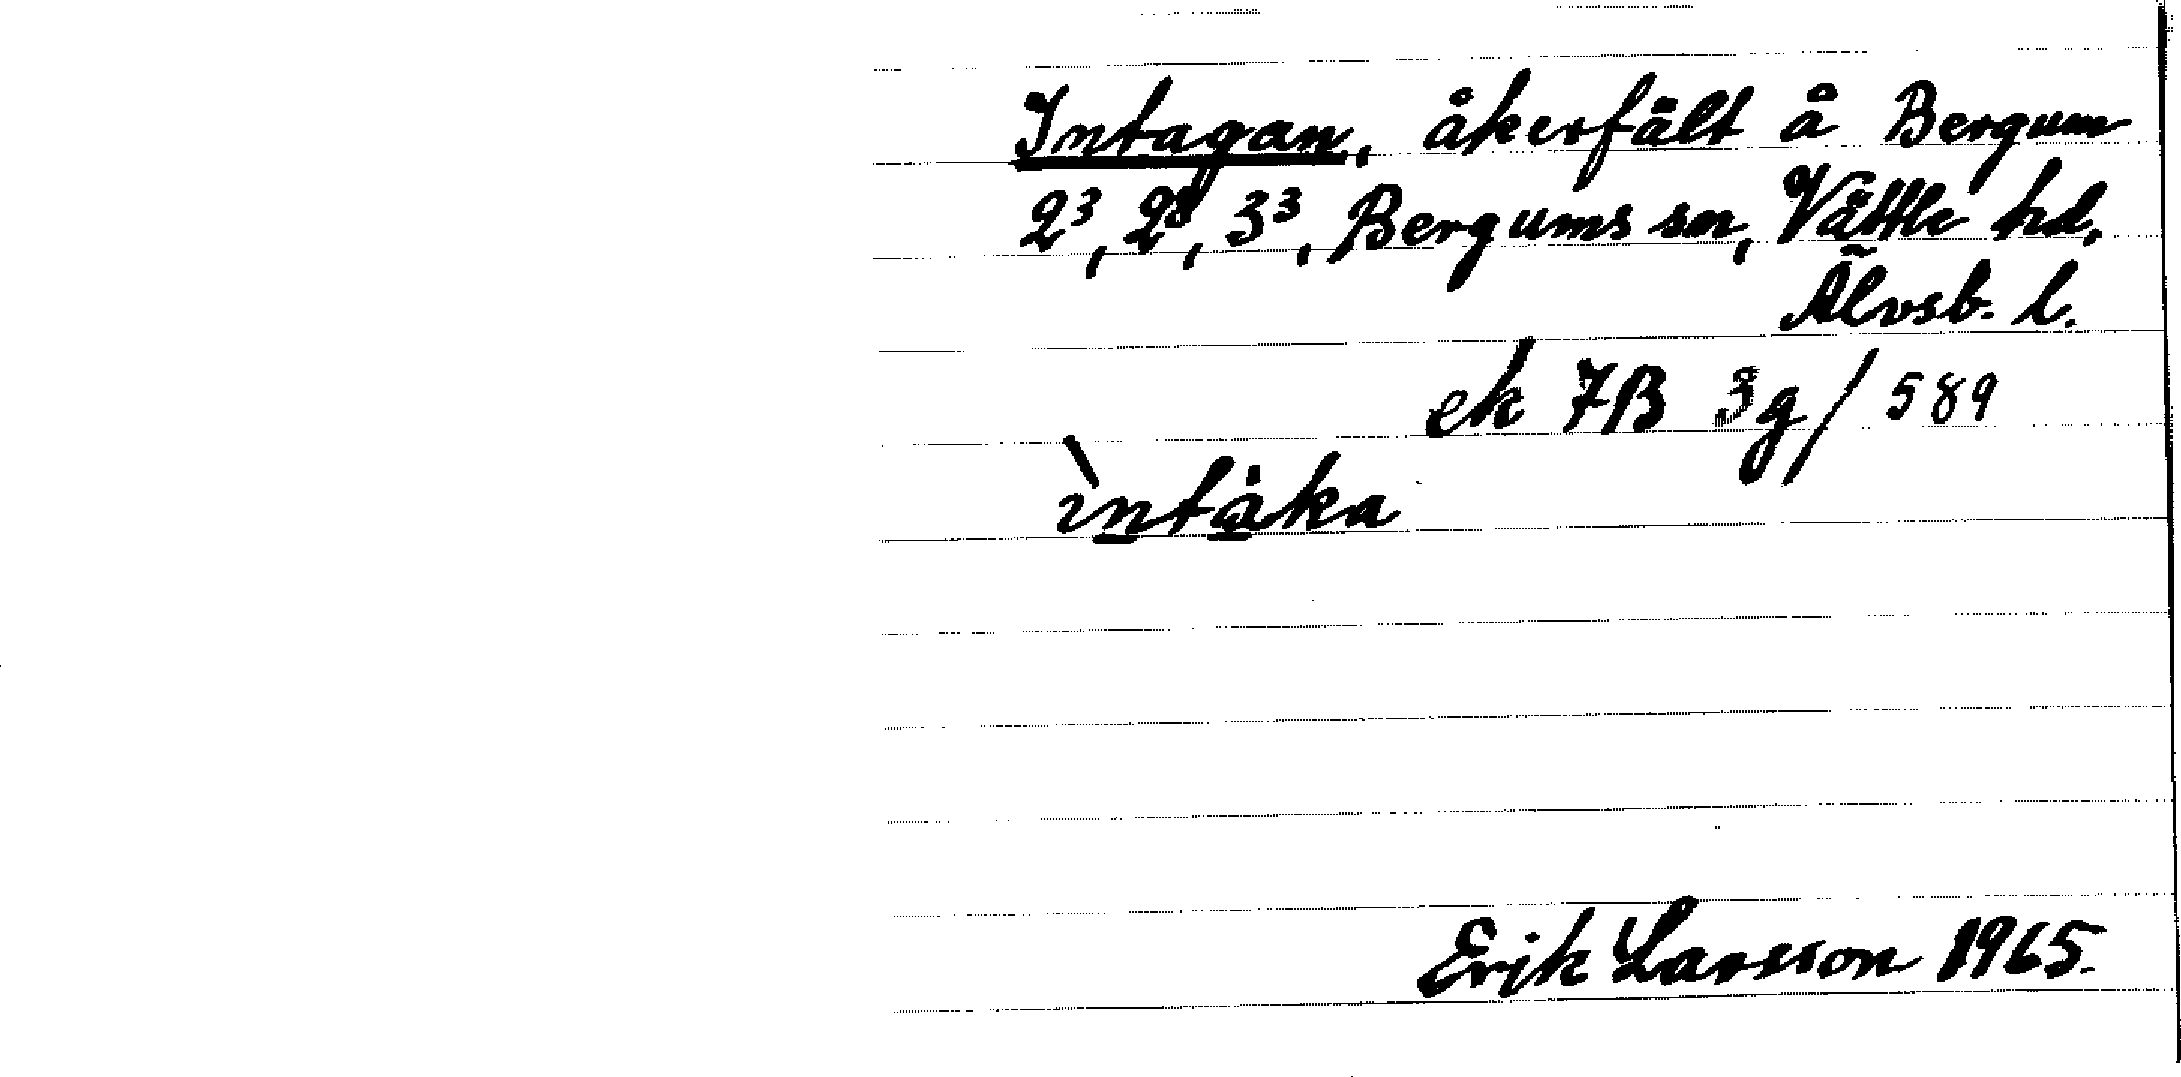 Intagan, åkerfält å Bergum
2³, 2⁸, 3³, Bergums sn, Vättle hd,
Älvsb. l.
ek 7B 3g/589
ìntåka
Erik Larsson 1965.